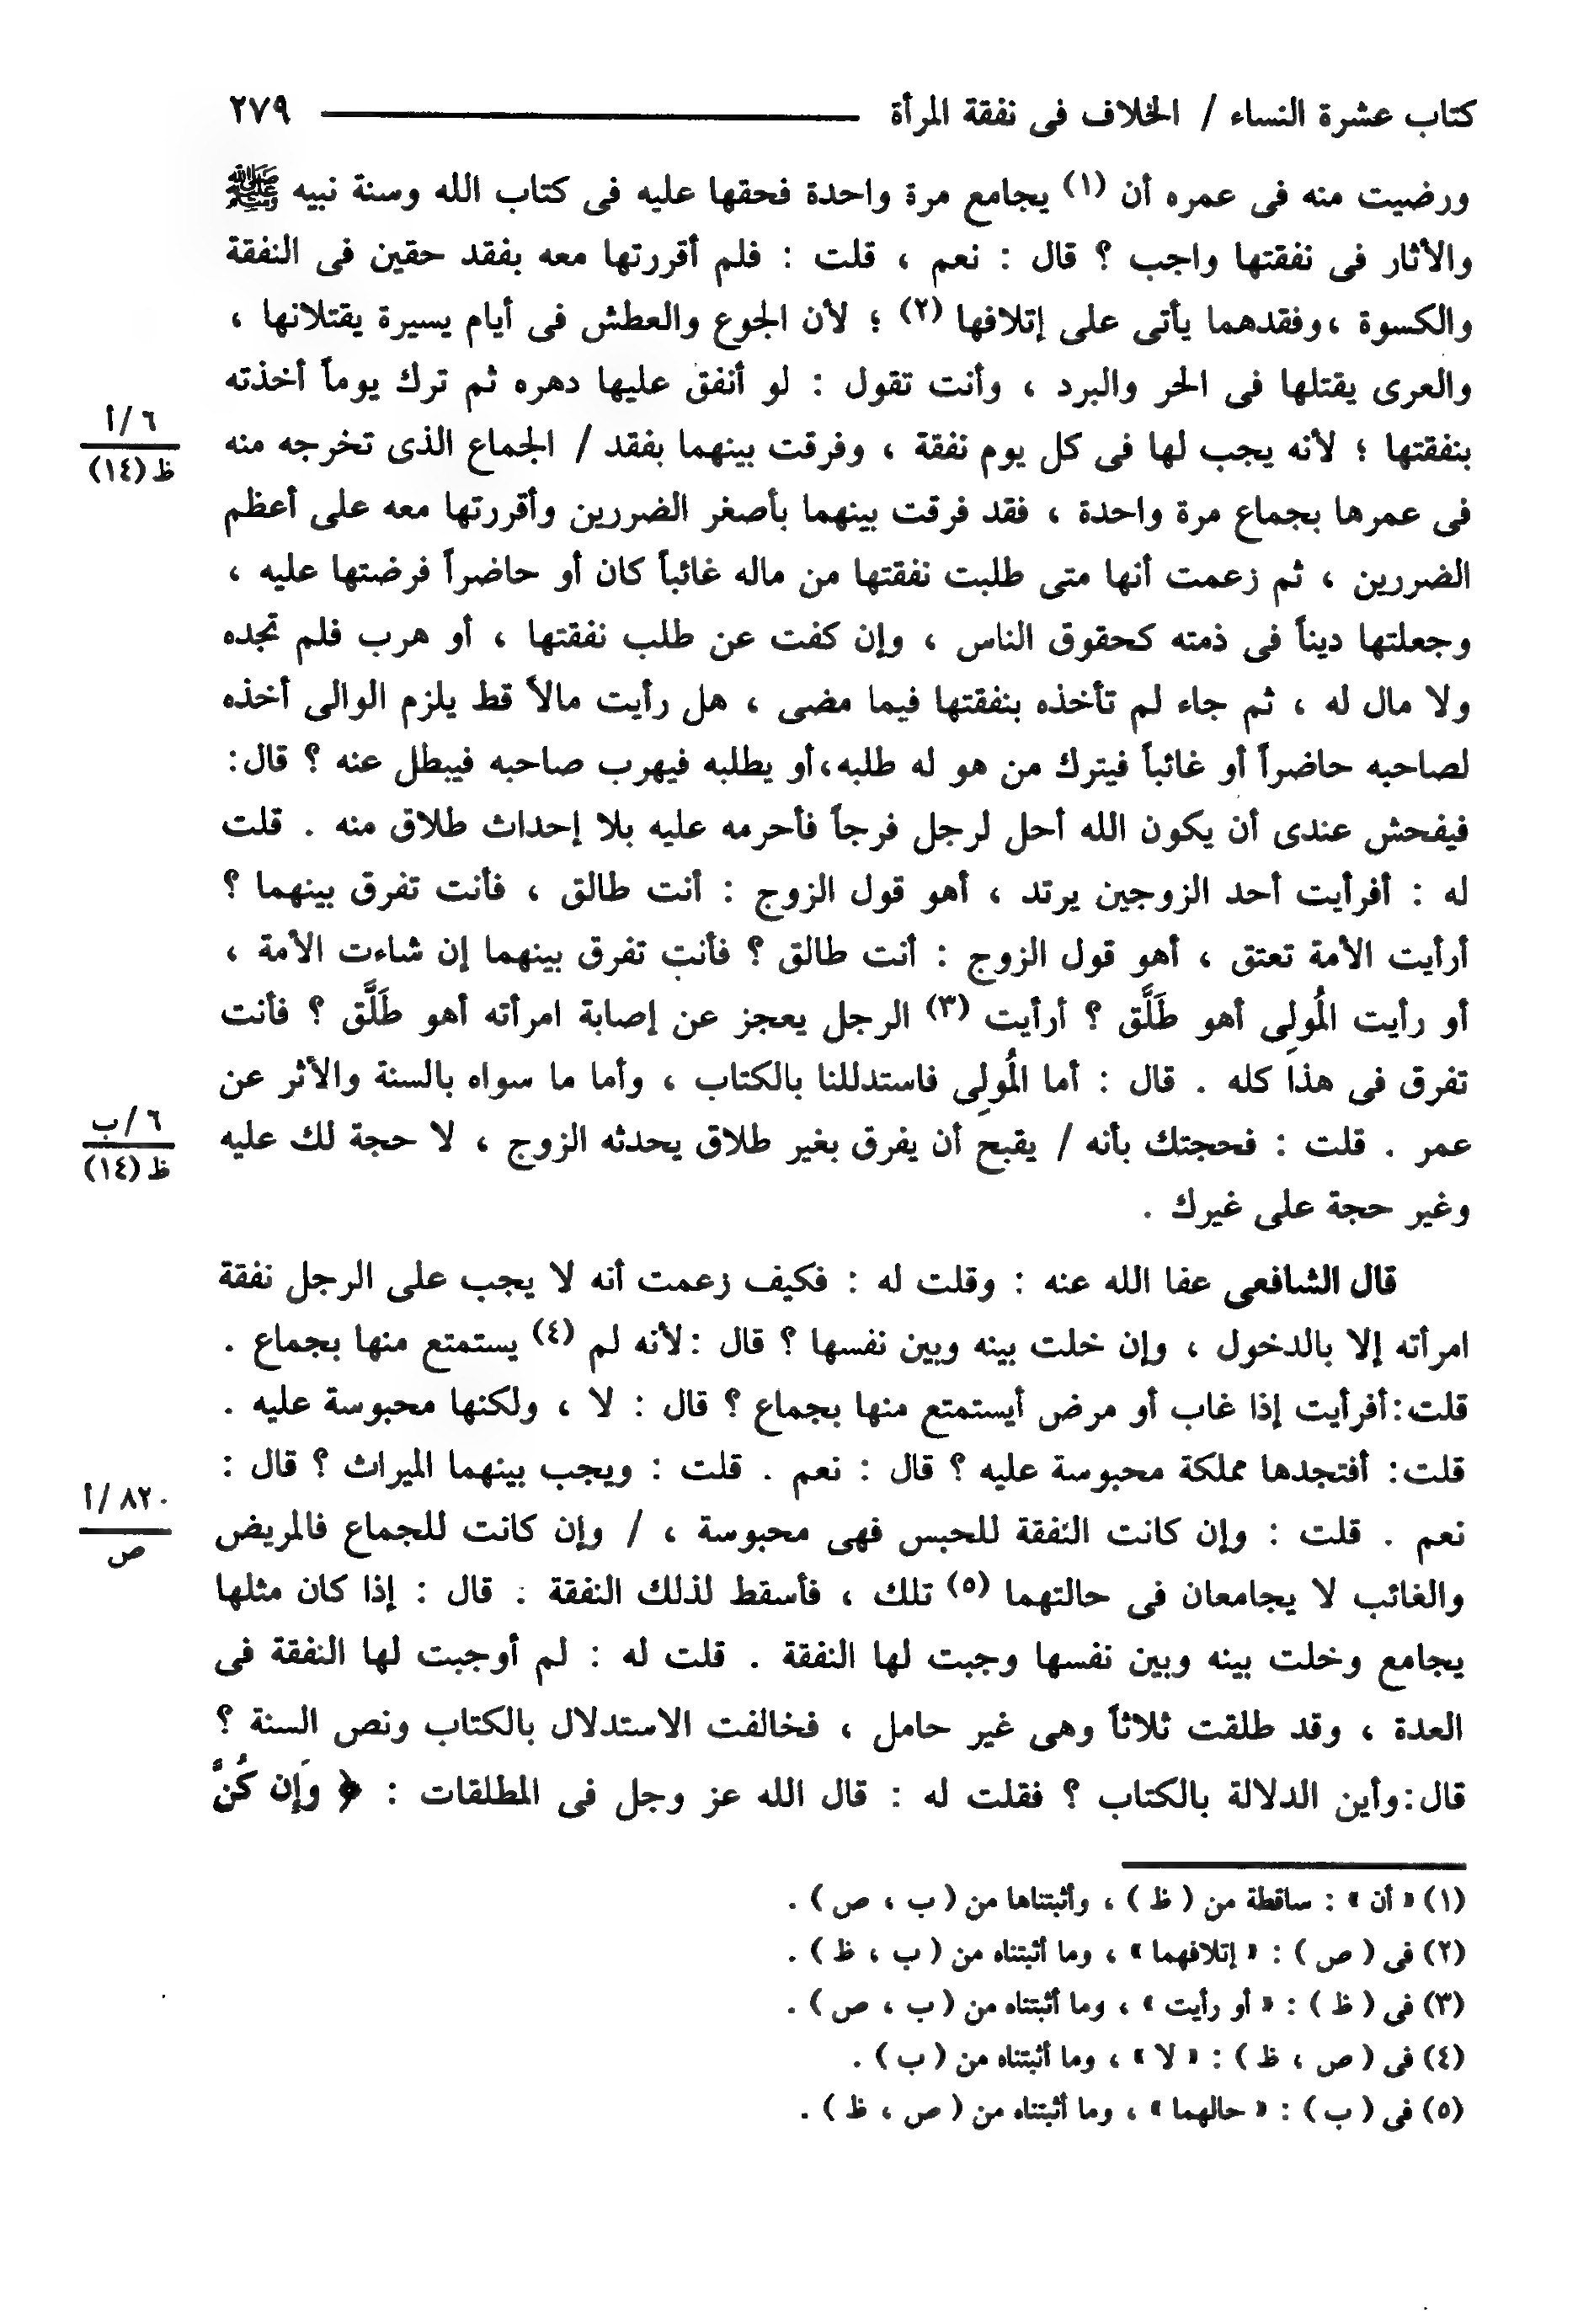 كتاب عشرة النساء / الخلاف فى نفقة المرأة ٢٧٩
ورضيت منه فى عمره أن (١) يجامع مرة واحدة فحقها عليه فى كتاب الله وسنة نبيه ﷺ
والأثار فى نفقتها واجب ؟ قال : نعم ، قلت : فلم أقررتها معه بفقد حقين فى النفقة
والكسوة ،وفقدهما يأتى على إتلافها (٢) ؛ لأن الجوع والعطش فى أيام يسيرة يقتلانها ،
والعرى يقتلها فى الحر والبرد ، وأنت تقول : لو أنفق عليها دهره ثم ترك يوماً أخذته
بنفقتها ؛ لأنه يجب لها فى كل يوم نفقة ، وفرقت بينهما بفقد / الجماع الذى تخرجه منه
٦ /أ
ظ (١٤)
فى عمرها بجماع مرة واحدة ، فقد فرقت بينهما بأصغر الضررين وأقررتها معه على أعظم
الضررين ، ثم زعمت أنها متى طلبت نفقتها من ماله غائباً كان أو حاضراً فرضتها عليه ،
وجعلتها ديناً فى ذمته كحقوق الناس ، وإن كفت عن طلب نفقتها ، أو هرب فلم تجده
ولا مال له ، ثم جاء لم تأخذه بنفقتها فيما مضى ، هل رأيت مالاً قط يلزم الوالى أخذه
لصاحبه حاضراً أو غائباً فيترك من هو له طلبه،أو يطلبه فيهرب صاحبه فيبطل عنه ؟ قال:
فيفحش عندى أن يكون الله أحل لرجل فرجاً فأحرمه عليه بلا إحداث طلاق منه . قلت
له : أفرأيت أحد الزوجين يرتد ، أهو قول الزوج : أنت طالق ، فأنت تفرق بينهما ؟
أرأيت الأمة تعتق ، أهو قول الزوج : أنت طالق ؟ فأنت تفرق بينهما إن شاءت الأمة ،
أو رأيت المُولِى أهو طَلَّق ؟ أرأيت (٣) الرجل يعجز عن إصابة امرأته أهو طَلَّق ؟ فأنت
تفرق فى هذا كله . قال : أما المُولِى فاستدللنا بالكتاب ، وأما ما سواه بالسنة والأثر عن
عمر . قلت : فحجتك بأنه / يقبح أن يفرق بغير طلاق يحدثه الزوج ، لا حجة لك عليه
٦ /ب
ظ (١٤)
وغير حجة على غيرك .
قال الشافعى عفا الله عنه : وقلت له : فكيف زعمت أنه لا يجب على الرجل نفقة
امرأته إلا بالدخول ، وإن خلت بينه وبين نفسها ؟ قال :لأنه لم (٤) يستمتع منها بجماع .
قلت:أفرأيت إذا غاب أو مرض أيستمتع منها بجماع ؟ قال : لا ، ولكنها محبوسة عليه .
قلت: أفتجدها مملكة محبوسة عليه ؟ قال : نعم . قلت : ويجب بينهما الميراث ؟ قال :
نعم . قلت : وإن كانت النفقة للحبس فهى محبوسة ، / وإن كانت للجماع فالمريض
٨٢٠ /أ
ص
والغائب لا يجامعان فى حالتهما (٥) تلك ، فأسقط لذلك النفقة . قال : إذا كان مثلها
يجامع وخلت بينه وبين نفسها وجبت لها النفقة . قلت له : لم أوجبت لها النفقة فى
العدة ، وقد طلقت ثلاثاً وهى غير حامل ، فخالفت الاستدلال بالكتاب ونص السنة ؟
قال:وأين الدلالة بالكتاب ؟ فقلت له : قال الله عز وجل فى المطلقات : ﴿ وَإِن كُنَّ
(١) « أن » : ساقطة من ( ظ ) ، وأثبتناها من ( ب ، ص ) .
(٢) فى ( ص ) : « إتلافهما » ، وما أثبتناه من ( ب ، ظ ) .
(٣) فى ( ظ ) : « أو رأيت » ، وما أثبتناه من ( ب ، ص ) .
(٤) فى ( ص ، ظ ) : « لا » ، وما أثبتناه من ( ب ) .
(٥) فى ( ب ) : « حالهما » ، وما أثبتناه من ( ص ، ظ ) .